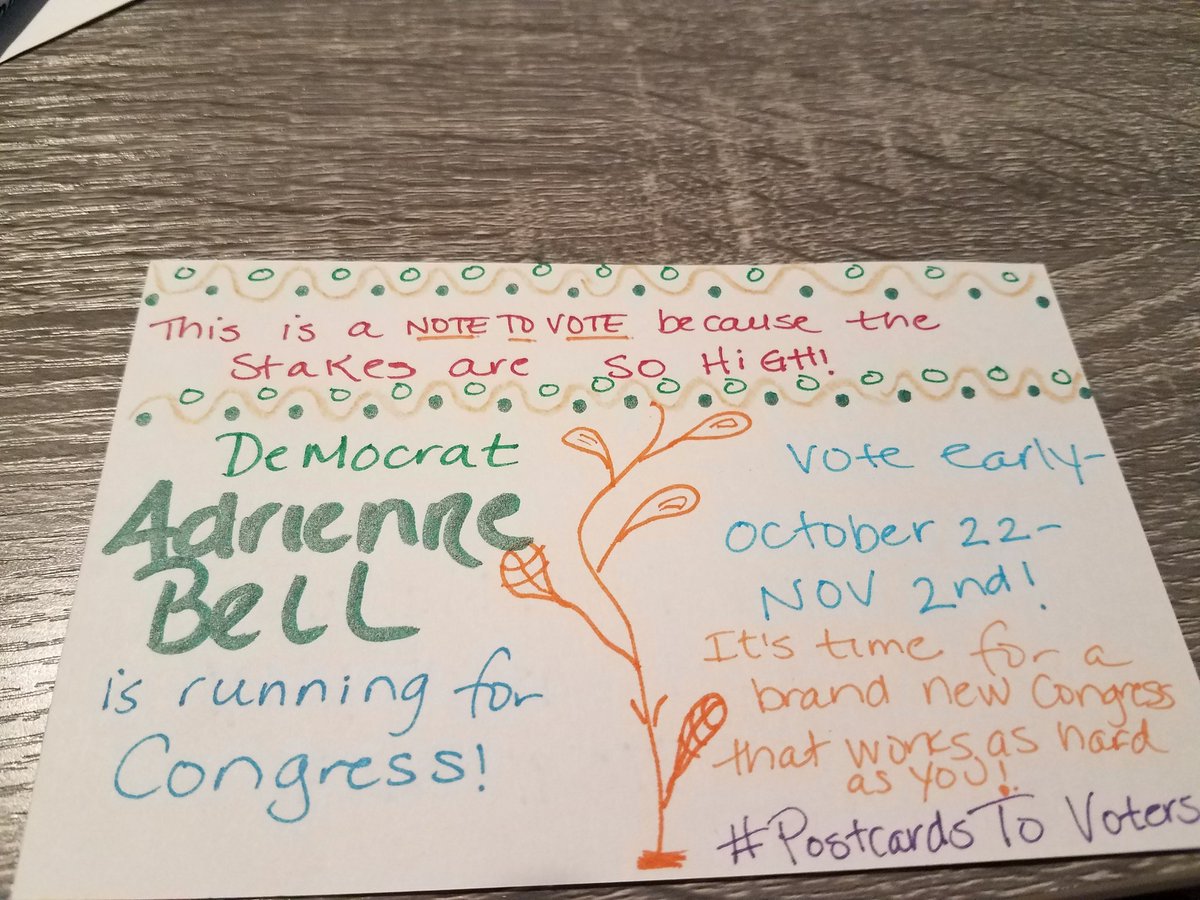 This is a NOTE TO VOTE because the
Stakes are SO HiGH!
DeMocrat
Adrienne
Bell
is running for
Congress!
Vote early-
October 22-
NOV 2nd!
It's time for a
brand new Congress
that works as hard
as you!
#PostcardsTo Voters